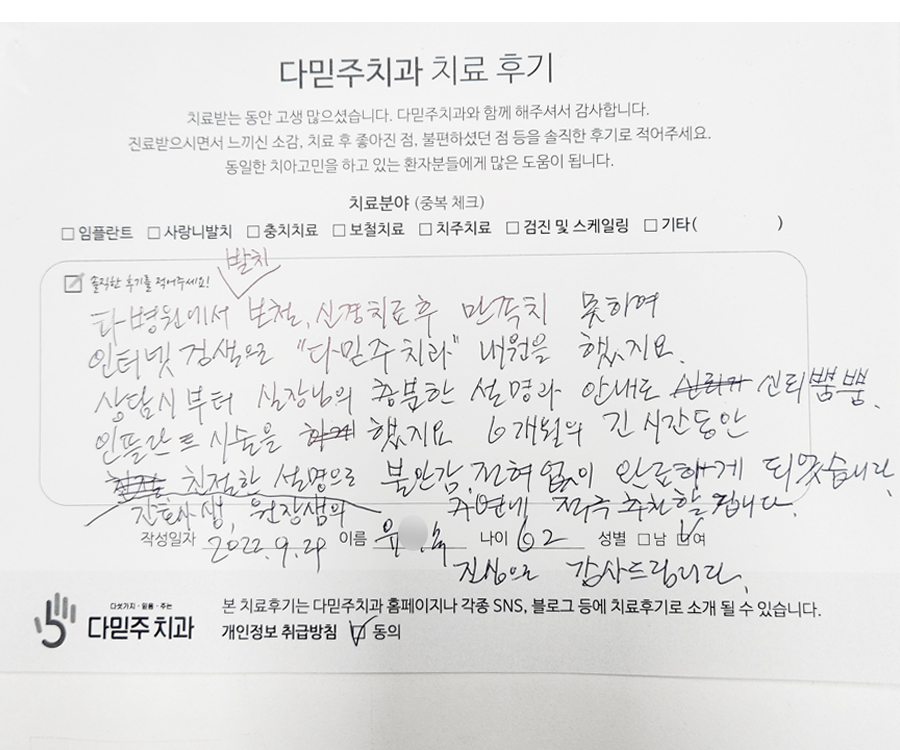 다믿주치과 치료 후기
치료받는 동안 고생 많으셨습니다. 다믿주치과와 함께 해주셔서 감사합니다.
진료받으시면서 느끼신 소감, 치료 후 좋아진 점, 불편하셨던 점 등을 솔직한 후기로 적어주세요.
동일한 치아고민을 하고 있는 환자분들에게 많은 도움이 됩니다.
치료분야 (중복 체크)
□ 임플란트 □ 사랑니발치 □ 충치치료 □ 보철치료 □ 치주치료 □ 검진 및 스케일링 □ 기타 ( )
솔직한 후기를 적어주세요!
발치
타 병원에서 보철, 신경치료 후 만족치 못하여
인터넷 검색으로 "다믿주 치과" 내원을 했지요.
상담시부터 실장님의 충분한 설명과 안내로 신뢰뿜뿜.
인플란트 시술을 했지요 6개월의 긴 시간동안
친절한 설명으로 불안감 전혀 없이 완료하게 되었습니다
간호사샘, 원장샘의
주변에 적극 추천할 겁니다.
작성일자 2022.9.29 이름 유 숙 나이 62 성별 □남 ☑여
진심으로 감사드립니다.
다섯가지·믿음·주는
다믿주치과
본 치료후기는 다믿주치과 홈페이지나 각종 SNS, 블로그 등에 치료후기로 소개 될 수 있습니다.
개인정보 취급방침 ☑ 동의